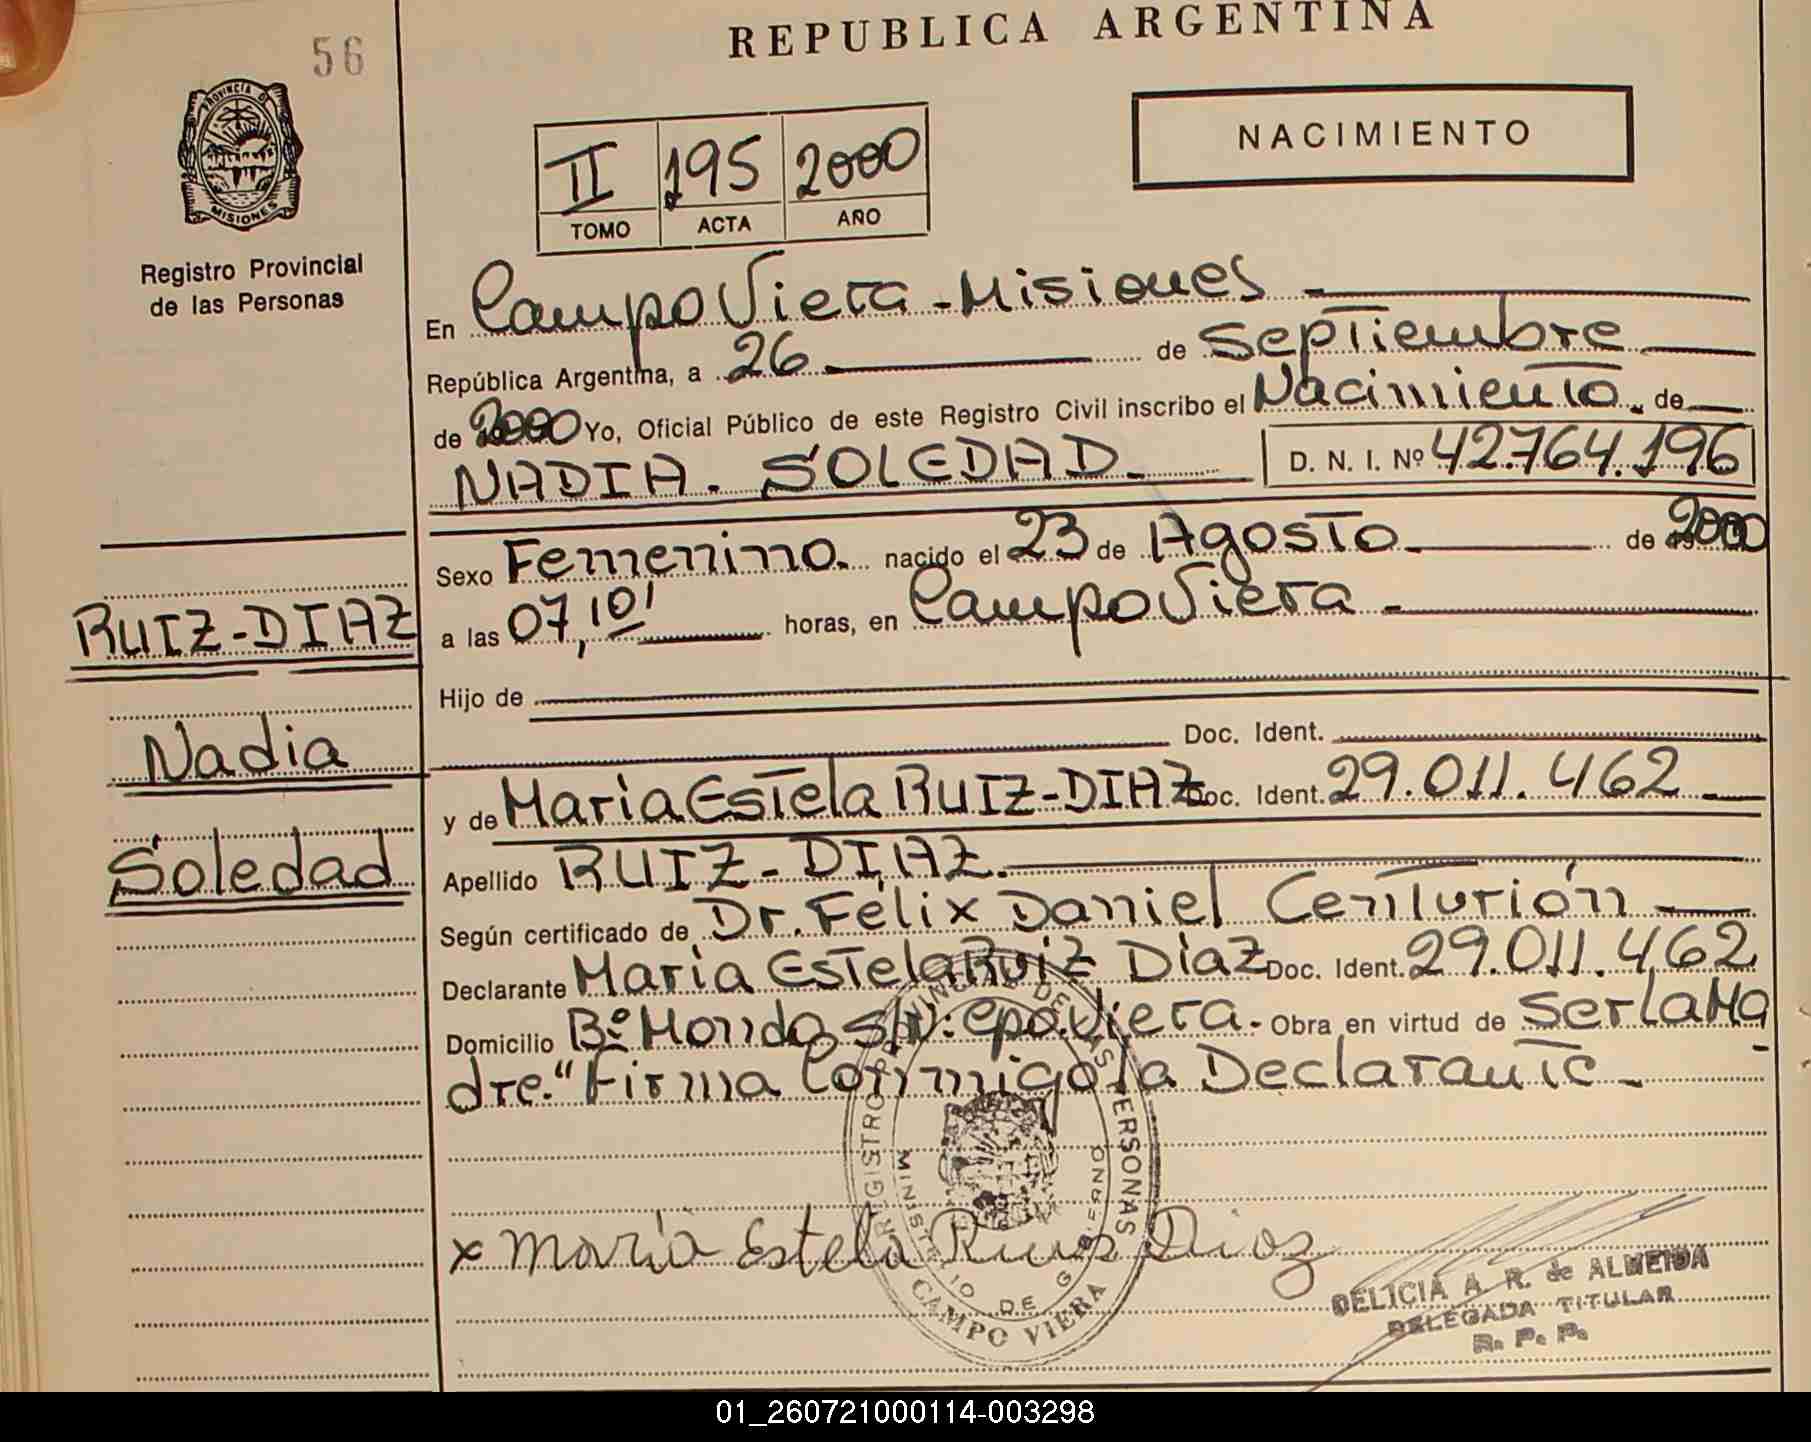 56
REPUBLICA ARGENTINA
PROVINCIA DE
MISIONES
Registro Provincial
de las Personas
II 195 2000
TOMO ACTA AÑO
NACIMIENTO
En Campo Viera - Misiones -
República Argentina, a 26 de Septiembre
de 2000 Yo, Oficial Público de este Registro Civil inscribo el Nacimiento. de
NADIA. SOLEDAD. D. N. I. Nº 42.764.196
Sexo Femenino. nacido el 23 de Agosto de 2000
a las 07,10' horas, en Campo Viera -
Hijo de
Doc. Ident.
y de Maria Estela RUIZ-DIAZ Doc. Ident. 29.011.462
Apellido RUIZ-DIAZ.
Según certificado de Dr. Félix Daniel Centurión
Declarante Maria Estela Ruiz Diaz Doc. Ident. 29.011.462
Domicilio Bº Mondo s/n: cpo. Viera. Obra en virtud de ser la Ma
dre." Firma Conmigo la Declarante -
RUIZ-DIAZ
Nadia
Soledad
REGISTRO PROVINCIAL DE LAS PERSONAS
MINISTERIO DE GOBIERNO
CAMPO VIERA
x Maria Estela Ruis Diaz
DELICIA A. R. de ALMEIDA
DELEGADA TITULAR
R. P. P.
01_260721000114-003298